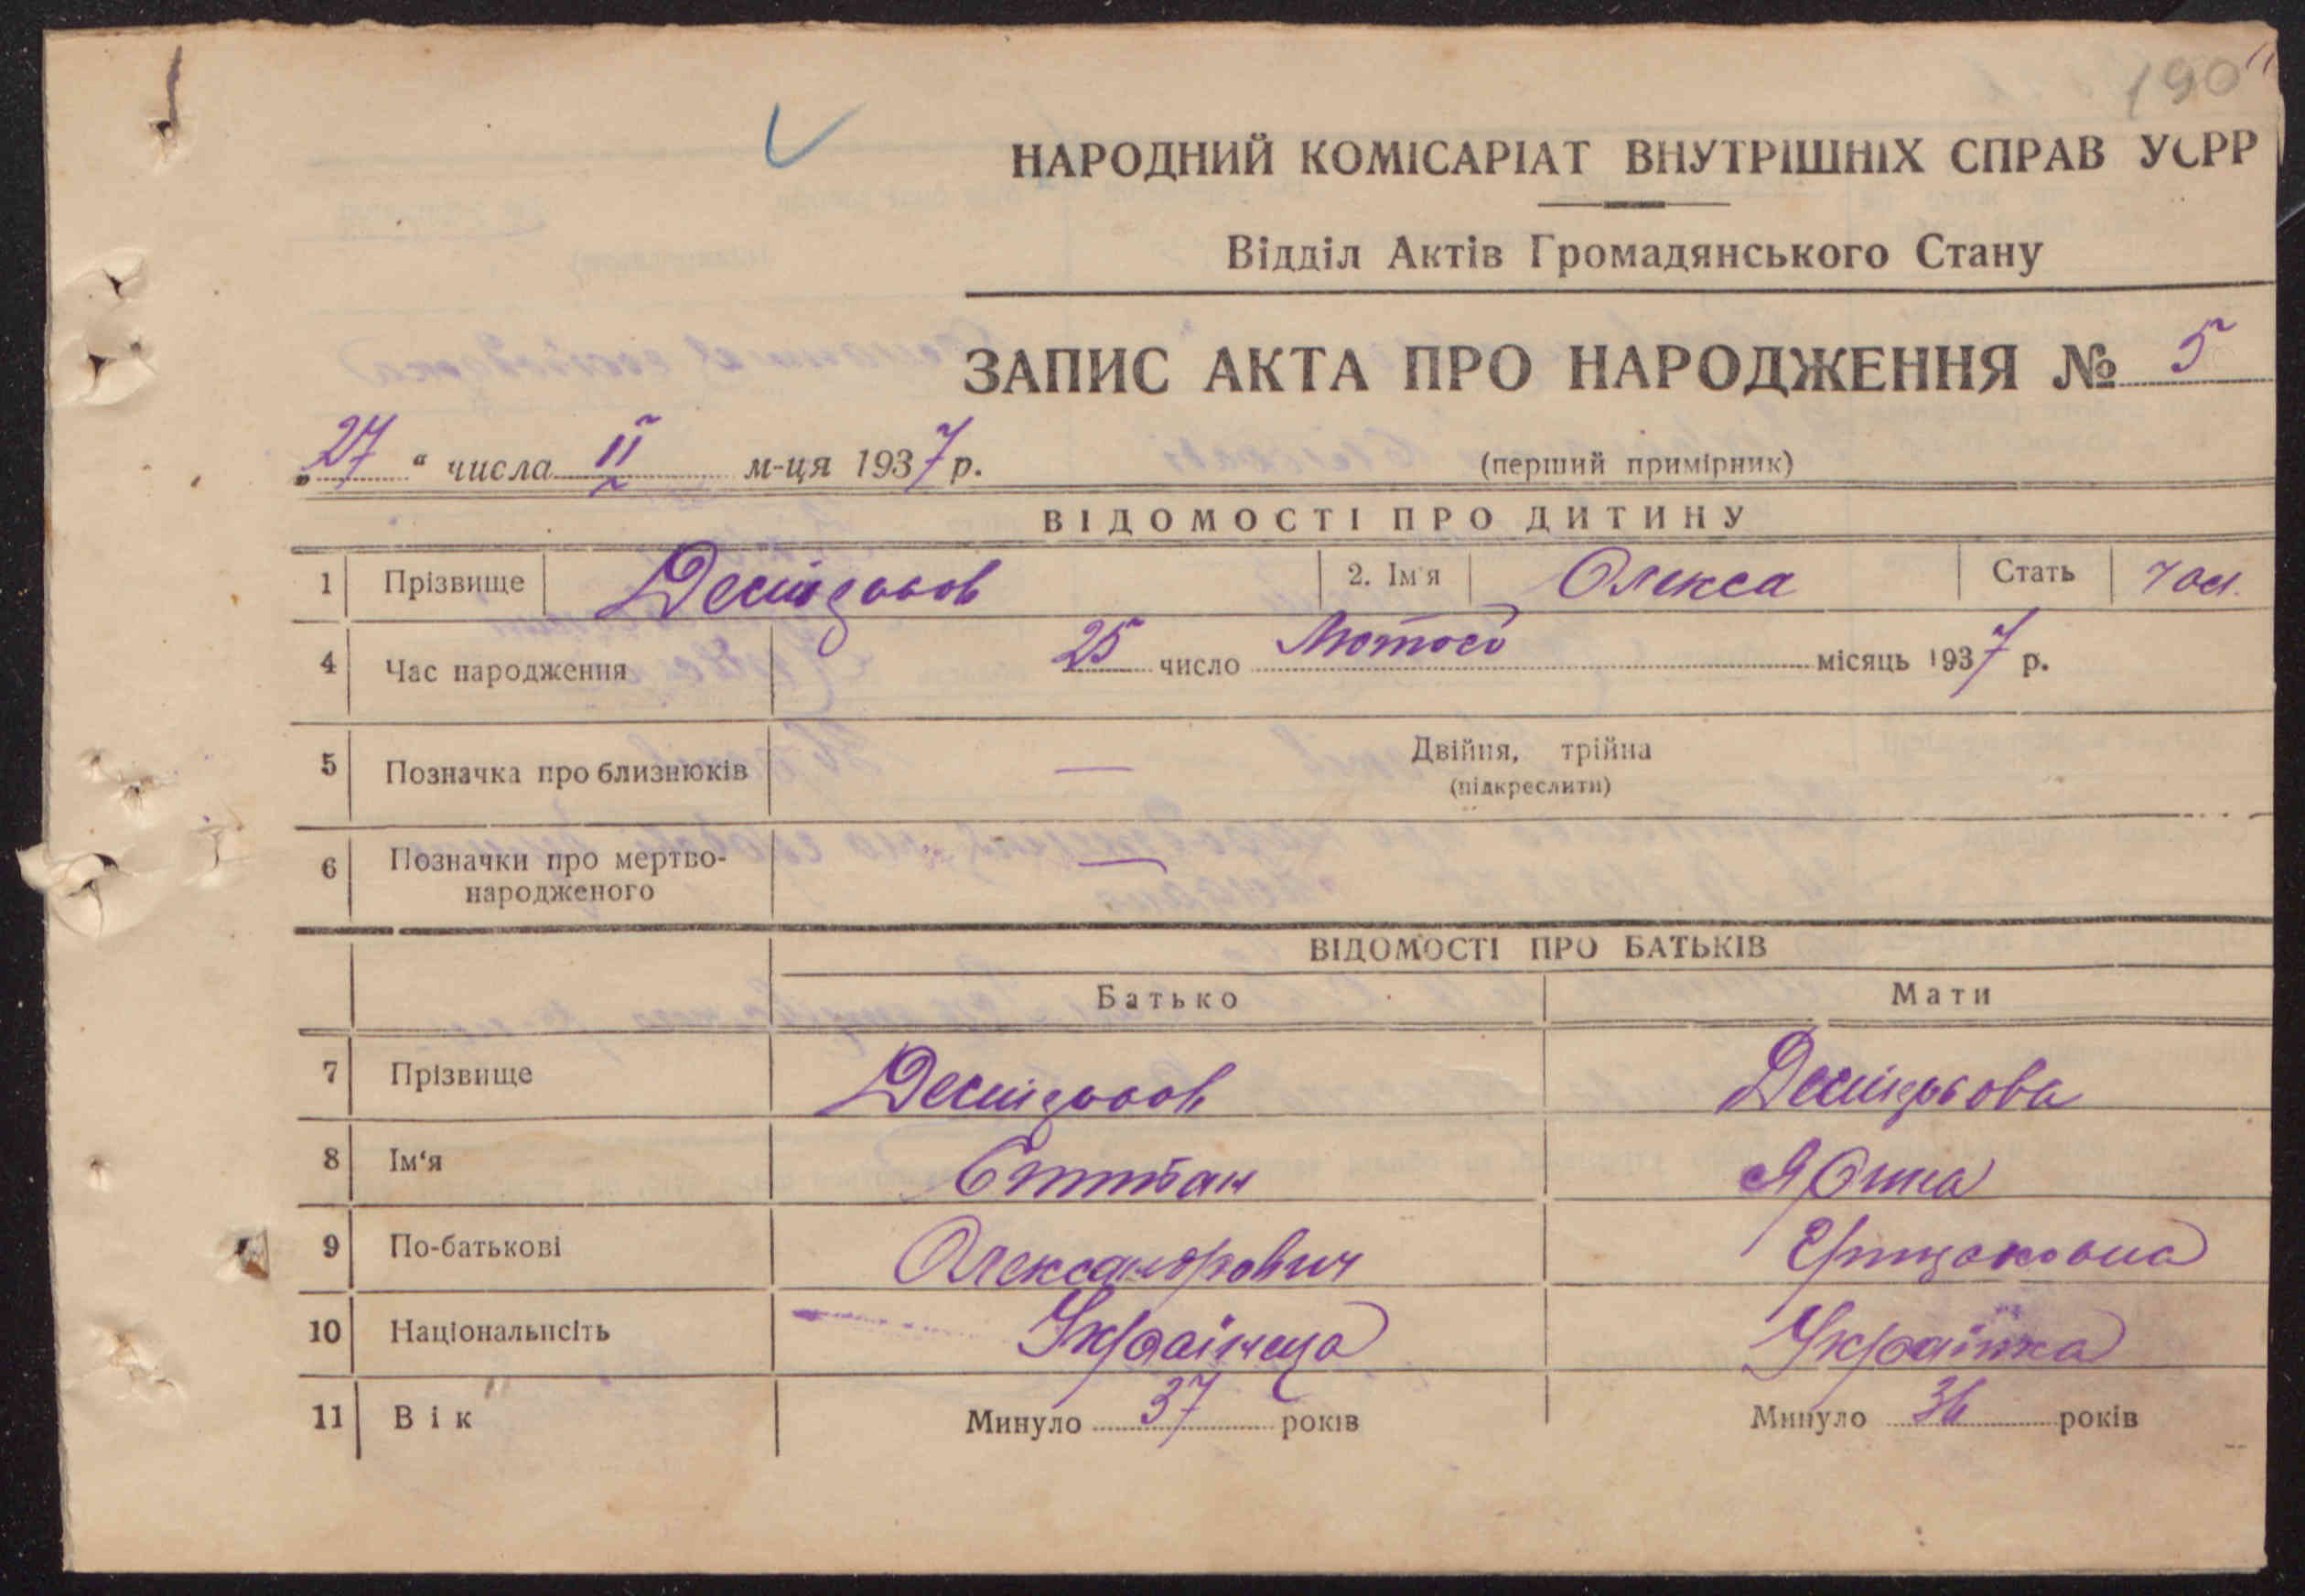 190
НАРОДНИЙ КОМІСАРІАТ ВНУТРІШНІХ СПРАВ УСРР
Відділ Актів Громадянського Стану
ЗАПИС АКТА ПРО НАРОДЖЕННЯ № 5
„27“ числа II м-ця 1937 р.
(перший примірник)
ВІДОМОСТІ ПРО ДИТИНУ
1 Прізвище 2. Ім'я Олекса Стать чол.
4 Час народження 25 число Лютого місяць 1937 р.
5 Позначка про близнюків — Двійня, трійна
(підкреслити)
6 Позначки про мертво-
народженого —
ВІДОМОСТІ ПРО БАТЬКІВ
Батько Мати
7 Прізвище
8 Ім‘я
9 По-батькові Олександрович
10 Національнсіть Українець Українка
11 Вік Минуло 37 років Минуло 36 років